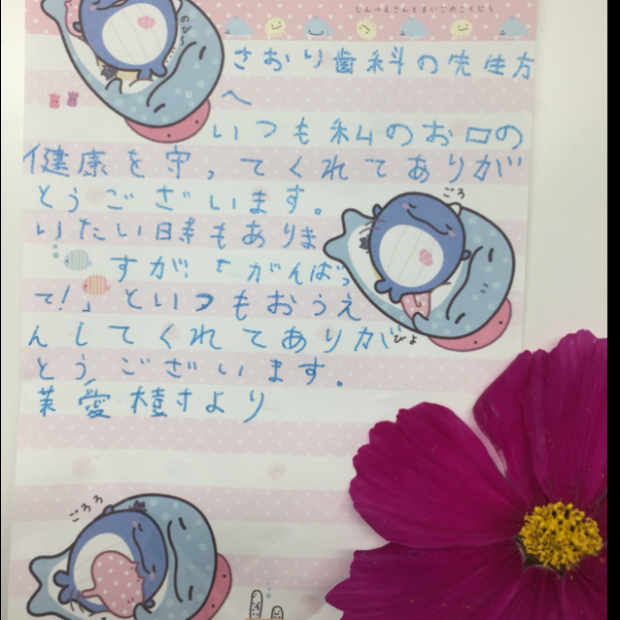 じんべえさんとまいごのこくじら
のび〜
さおり歯科の先生方
へ
いつも私のお口の
健康を守ってくれてありが
とうございます。
ごろ
いたい時もありま
すが!「がんばっ
て!」といつもおうえ
んしてくれてありが
ぴよ
とうございます。
愛樹より
ごろろ